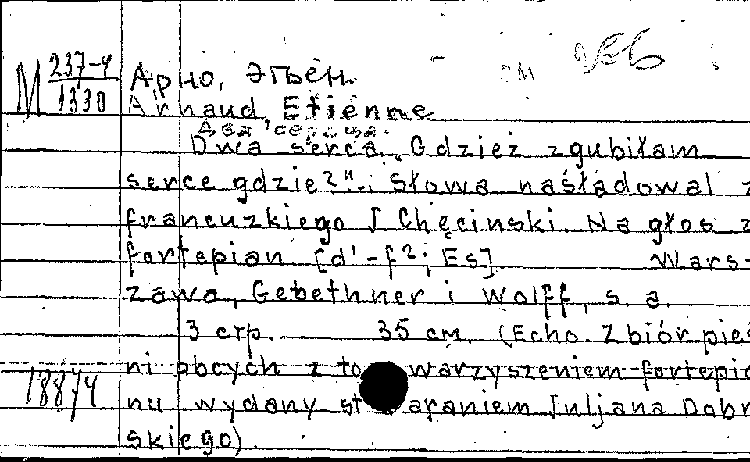 М 237-4
1330
Арно, Этьен.
Arnaud, Etienne
Два сердца.
Dwa serca. „Gdzież zgubiłam
serce gdzie?". Słowa naśładował z
francuzkiego J Chęcinski. Na głos z
fortepian [d'-f²; Es] Wars-
zawa, Gebethner i Wolff, s. a.
3 стр. 35 см. (Echo. Zbiór pieś
ni obcych z to warzyszeniem fortepia
nu wydany st araniem Juljana Dobr
skiego).
1887/4